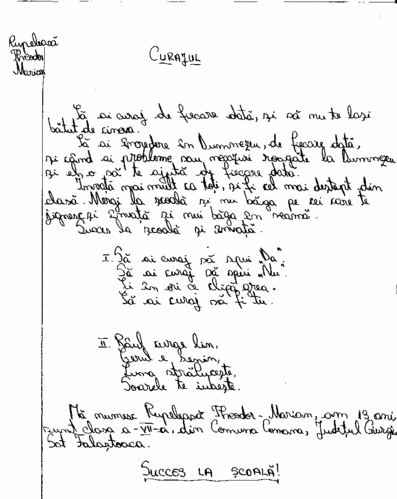 Rupeleasă
Theodor
Marian
CURAJUL
Să ai curaj de fiecare dată, și să nu te lași
bătut de cineva.
Să ai încredere în Dumnezeu, de fiecare dată,
și când ai probleme sau necazuri roagate la Dumnezeu
și el o să te ajută de fiecare dată.
Învață mai mult ca toți, și fi cel mai deștept din
clasă. Mergi la școală și nu băga pe cei care te
jignesc și învață și nui băga în seamă.
Succes la școală și învață.
I. Să ai curaj să spui „Da".
Să ai curaj să spui „Nu".
Și în ori ce clipă grea.
Să ai curaj să fi tu.
II. Râul curge lin,
Cerul e senin,
Luna strălucește,
Soarele te iubește.
Mă numesc Rupeleasă Theodor-Marian, am 13 ani,
sunt clasa a-VII-a, din Comuna Comana, Județul Giurgiu
Sat Falaștoaca.
SUCCES LA ȘCOALĂ!